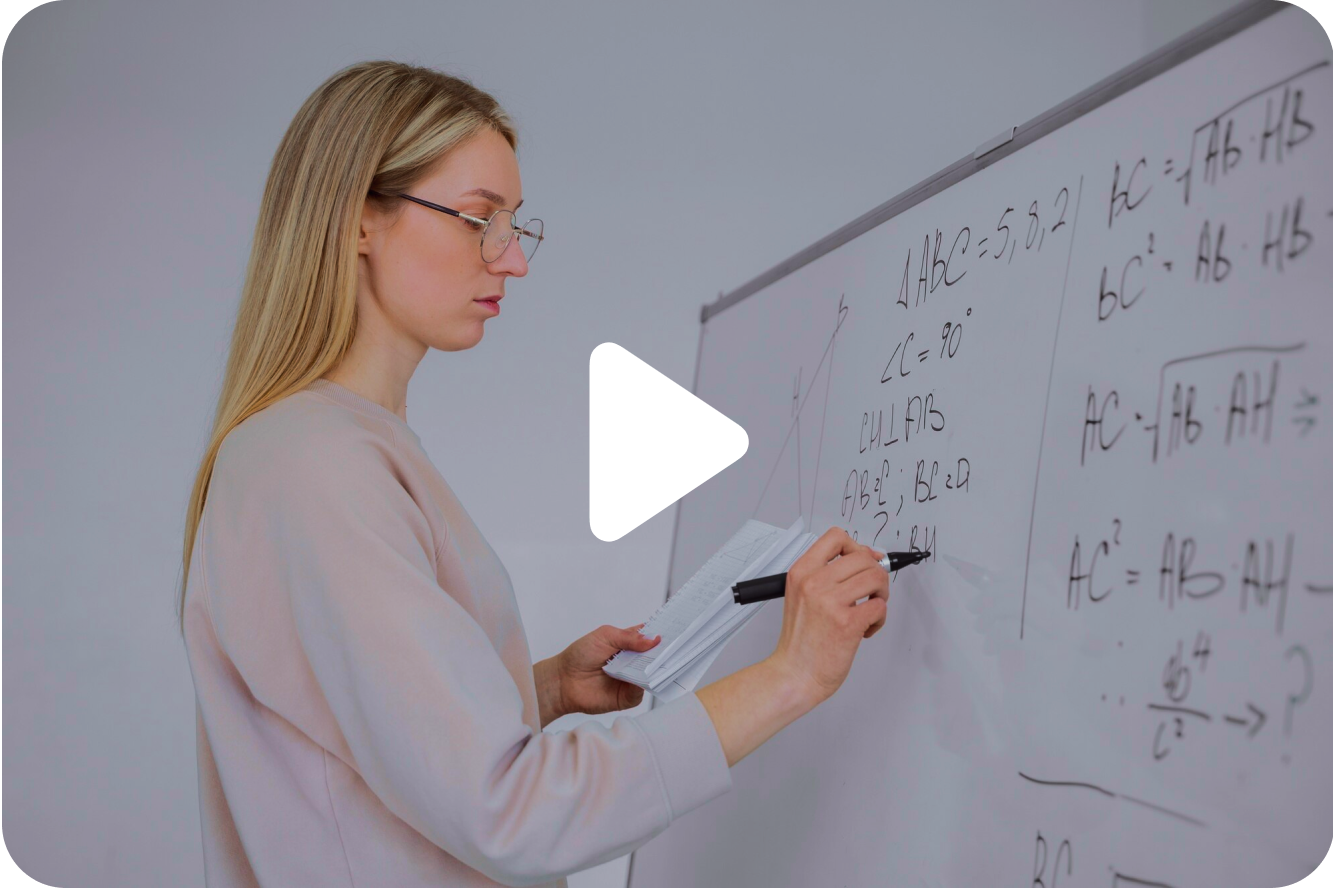 B
H
⊿ABC = 5, 8, 2
∠C = 90°
CH⊥AB
AB=C ; BC=a
; BH
BC = √AB · HB
BC² = AB · HB
AC = √AB · AH
AC² = AB · AH
ab⁴
c² → ?
BC